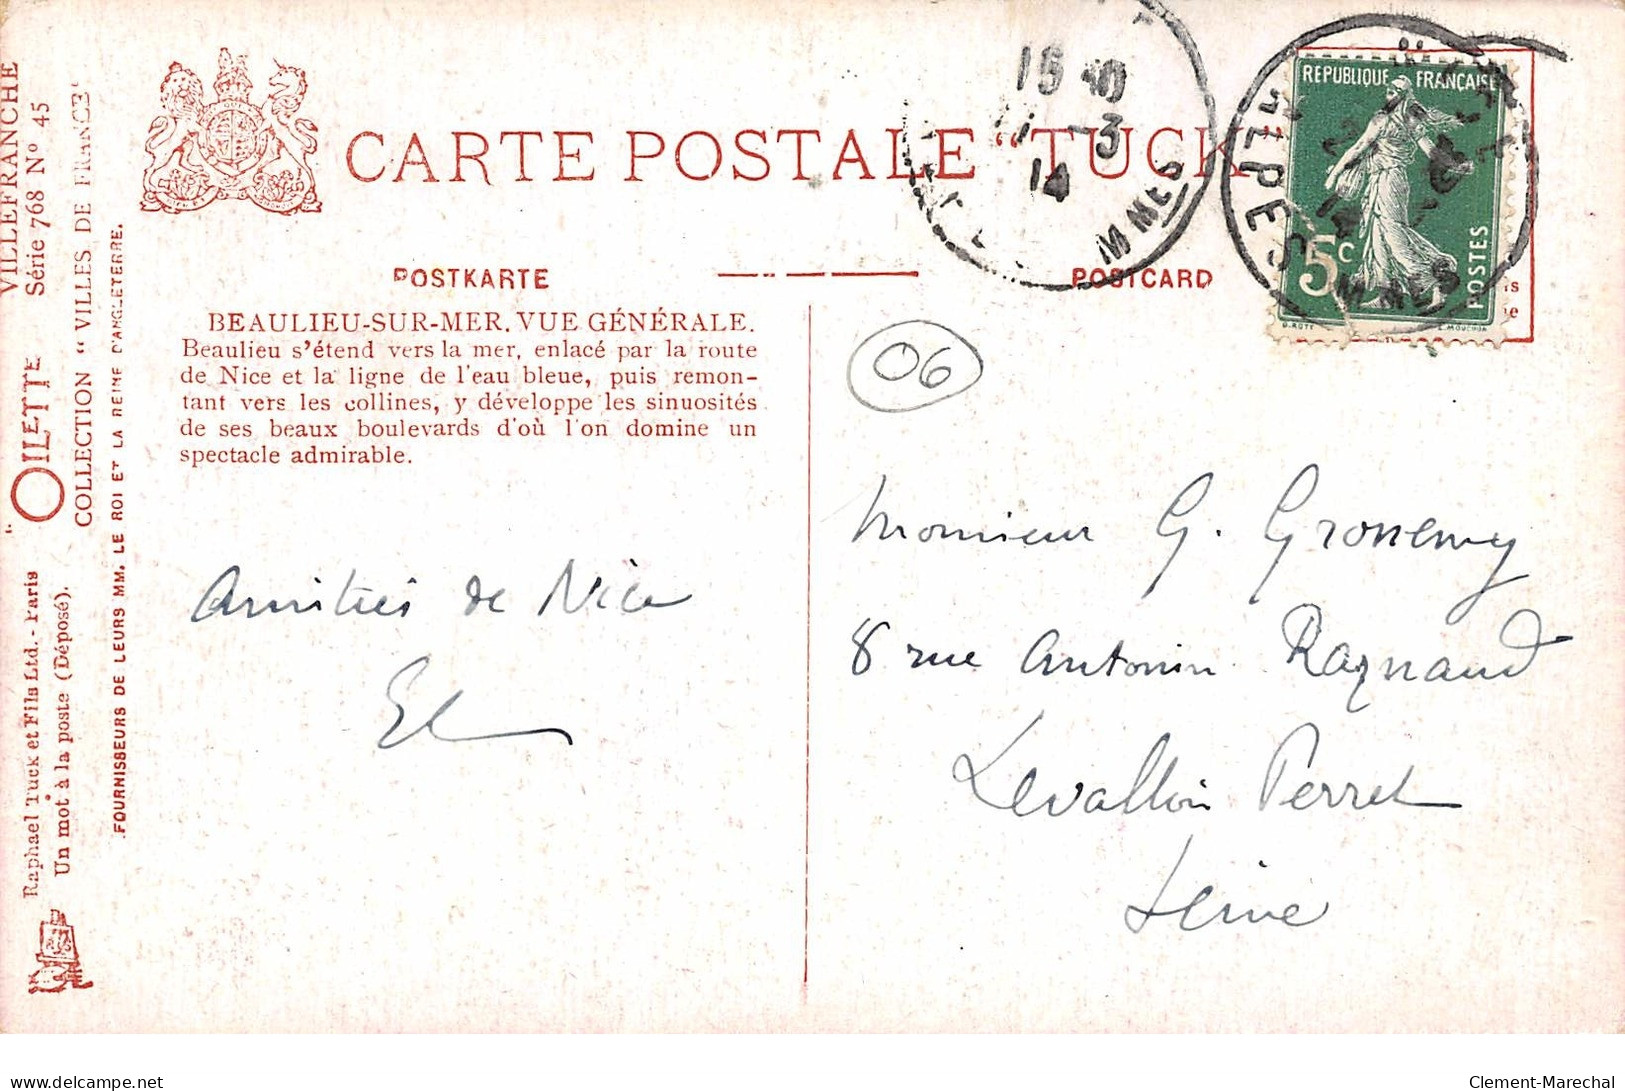 VILLEFRANCHE
Série 768 Nº 45
"OILETTE
COLLECTION "VILLES DE FRANCE"
Raphael Tuck et Fils Ltd. - Paris
Un mot à la poste (Déposé).
FOURNISSEURS DE LEURS MM. LE ROI ET LA REINE D'ANGLETERRE.
CARTE POSTALE "TUCK
POSTKARTE
POSTCARD
15
11 -3
14
MMES
RÉPUBLIQUE FRANÇAISE
5c
POSTES
O.ROTY
E.MOUCHON
ALPES
MMES
BEAULIEU-SUR-MER. VUE GÉNÉRALE.
Beaulieu s'étend vers la mer, enlacé par la route
de Nice et la ligne de l'eau bleue, puis remon-
tant vers les collines, y développe les sinuosités
de ses beaux boulevards d'où l'on domine un
spectacle admirable.
06
Amitiés de Nice
Monsieur G. Gronemy
8 rue Antonin Raynaud
Levallois Perret
Seine
delcampe.net
Clement-Marechal